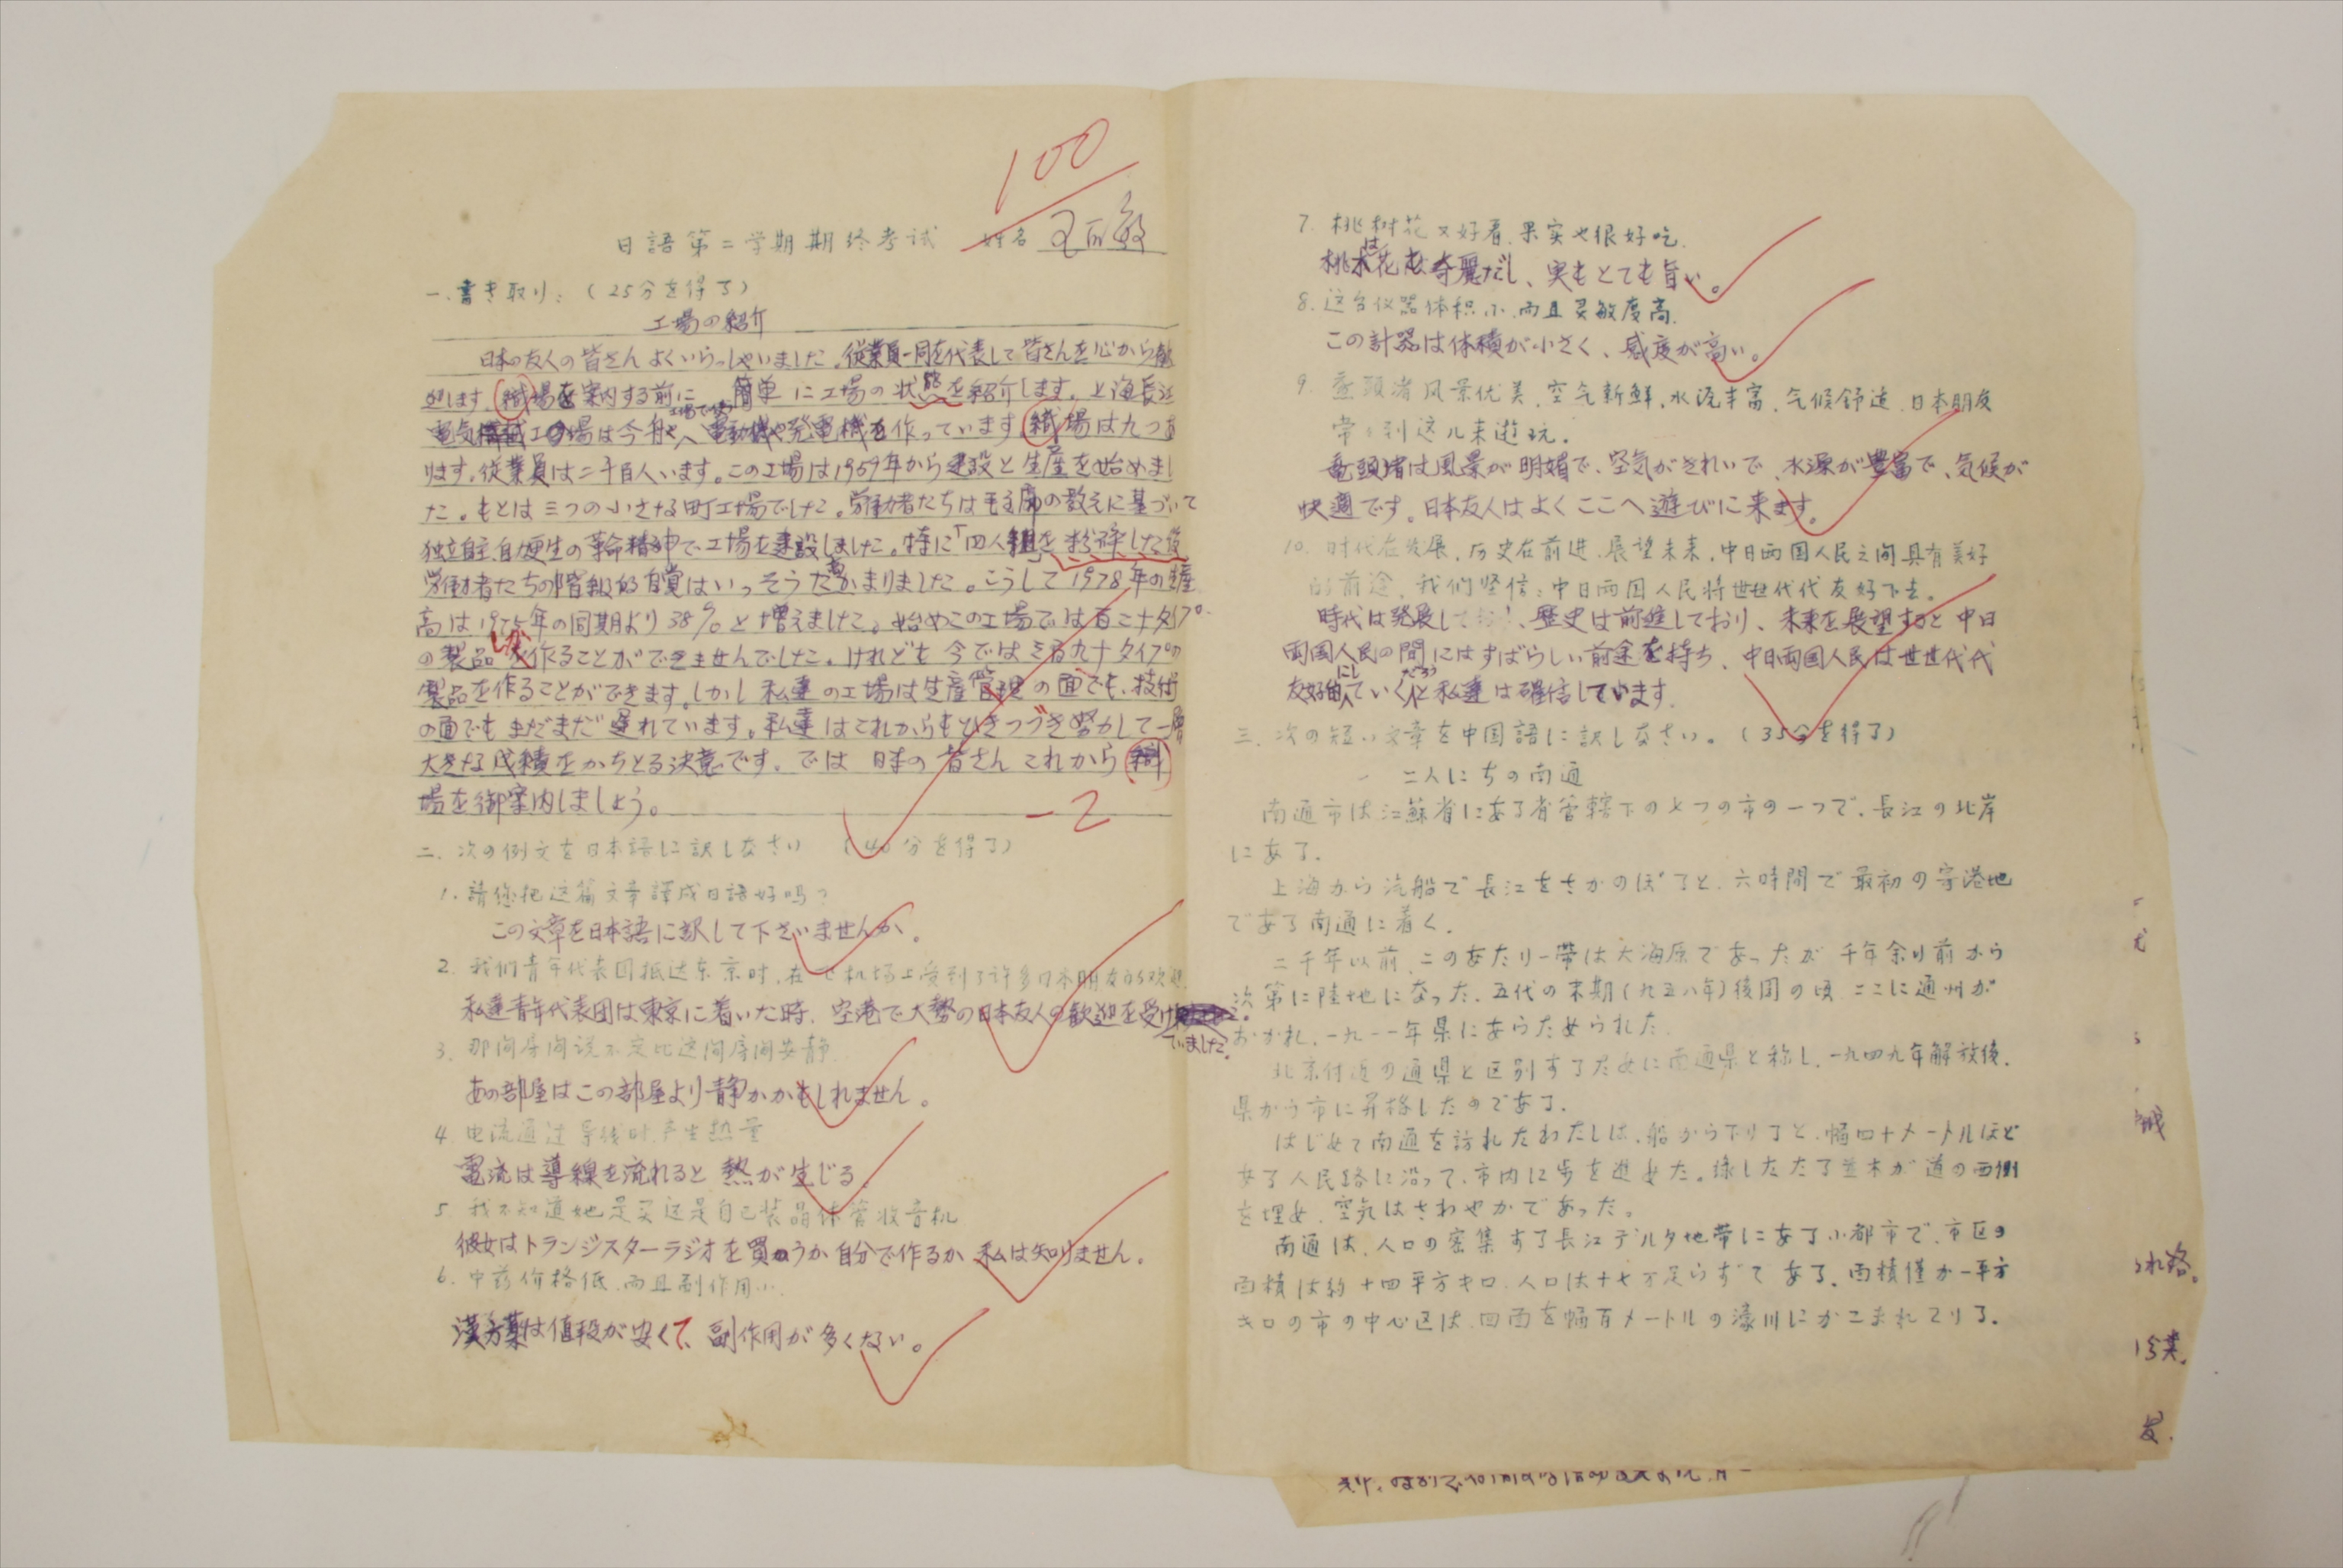 100
日語第二学期期終考试 姓名
一、書き取り：（25分を得了）
工場の紹介
日本の友人の皆さん よくいらっしゃいました。従業員一同を代表して皆さんを心から歓
迎します。職場を案内する前に 簡単に工場の状態を紹介します。上海長江
電気機械工場は今 電動機や発電機を作っています。職場は九つあ
ります。従業員は二千百人います。この工場は1959年から建設と生産を始めまし
た。もとは三つの小さな町工場でした。労働者たちは毛主席の教えに基づいて
独立自主、自力更生の革命精神で工場を建設しました。特に「四人組」を粉砕した後
労働者たちの階級的自覚はいっそう高まりました。こうして1978年の生産
高は1975年の同期より38%と増えました。始めこの工場では百二十タイプ
の製品しか作ることができませんでした。けれども今では三百九十タイプの
製品を作ることができます。しかし私達の工場は生産管理の面でも、技術
の面でもまだまだ遅れています。私達はこれからもひきつづき努力して一層
大きな成績をかちとる決意です。では 日本の皆さん これから職
場を御案内しましょう。
-2
二、次の例文を日本語に訳しなさい （40分を得了）
1. 請您把这篇文章譯成日語好吗？
この文章を日本語に訳して下さいませんか。
2. 我们青年代表团抵达东京时，在飞机场上受到了许多日本朋友的欢迎.
私達青年代表団は東京に着いた時、空港で大勢の日本友人の歓迎を受け
ていました。
3. 那间房间说不定比这间房间安静.
あの部屋はこの部屋より静かかもしれません。
4. 电流通过导线时产生热量
電流は導線を流れると 熱が生じる。
5. 我不知道她是买还是自己装晶体管收音机
彼女はトランジスターラジオを買うか自分で作るか 私は知りません。
6. 中药价格低，而且副作用小.
漢方薬は値段が安くて、副作用が多くない。
7. 桃树花又好看，果实也很好吃.
桃木花は奇麗だし、実もとても旨い。
8. 这台仪器体积小，而且灵敏度高.
この計器は体積が小さく、感度が高い。
9. 鼋頭渚风景优美，空气新鲜，水流丰富，气候舒适，日本朋友
常常到这儿来遊玩.
鼋頭渚は風景が明媚で、空気がきれいで、水源が豊富で、気候が
快適です。日本友人はよくここへ遊びに来ます。
10. 时代在发展，历史在前进，展望未来，中日两国人民之间具有美好
的前途，我们坚信：中日两国人民将世世代代友好下去。
時代は発展しており、歴史は前進しており、未来を展望すると 中日
両国人民の間にはすばらしい前途を持ち、中日両国人民は世世代代
友好にしていくだろうと私達は確信しています。
三、次の短い文章を中国語に訳しなさい。（35分を得了）
南通市は江蘇省にある省管轄下の七つの市の一つで、長江の北岸
にある。
上海から汽船で長江をさかのぼると、六時間で最初の寄港地
である南通に着く。
二千年以前、このあたり一帯は大海原であったが 千年余り前から
次第に陸地になった。五代の末期（九五八年）後周の頃 ここに通州が
おかれ、一九一一年県にあらためられた。
北京付近の通県と区別するために南通県と称し、一九四九年解放後、
県から市に昇格したのである。
はじめて南通を訪れたわたしは、船から下りると、幅四十メートルほど
ある人民路に沿って、市内に歩を進めた。緑したたる並木が道の両側
を埋め、空気はさわやかであった。
南通は、人口の密集する長江デルタ地帯にある小都市で、市区の
面積は約十四平方キロ、人口は十七万足らずである。面積僅か一平方
キロの市の中心区は、四面を幅百メートルの濠川にかこまれている。